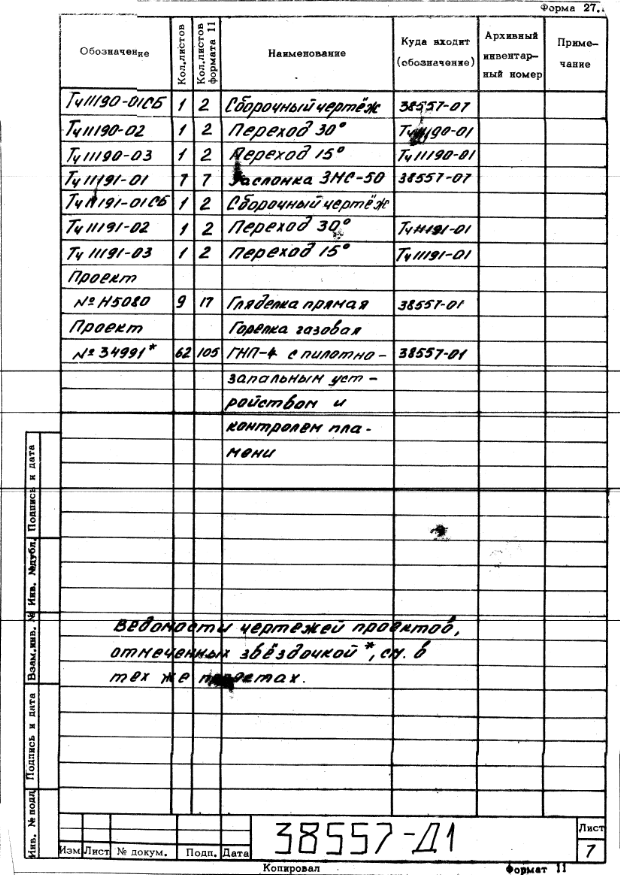 Форма 27.
Обозначение Кол.листов Кол.листов формата 11 Наименование Куда входит (обозначение) Архивный инвентарный номер Примечание
Ту11190-01СБ 1 2 Сборочный чертёж 38557-07
Ту11190-02 1 2 Переход 30° Ту11190-01
Ту11190-03 1 2 Переход 15° Ту11190-01
Ту11191-01 7 7 Заслонка ЗМС-50 38557-07
Ту11191-01СБ 1 2 Сборочный чертёж
Ту11191-02 1 2 Переход 30° Ту11191-01
Ту11191-03 1 2 Переход 15° Ту11191-01
Проект
№Н5080 9 17 Гляделка прямая 38557-01
Проект Горелка газовая
№34991* 62 105 ГНП-4 с пилотно- 38557-01
запальным уст-
ройством и
контролем пла-
мени
Ведомости чертежей проектов,
отмеченных звёздочкой *, см. в
тех же проектах.
Инв. № подл. Подпись и дата Взам.инв. № Инв. №дубл. Подпись и дата
Изм Лист № докум. Подп. Дата
38557-Д1
Лист
7
Копировал Формат 11